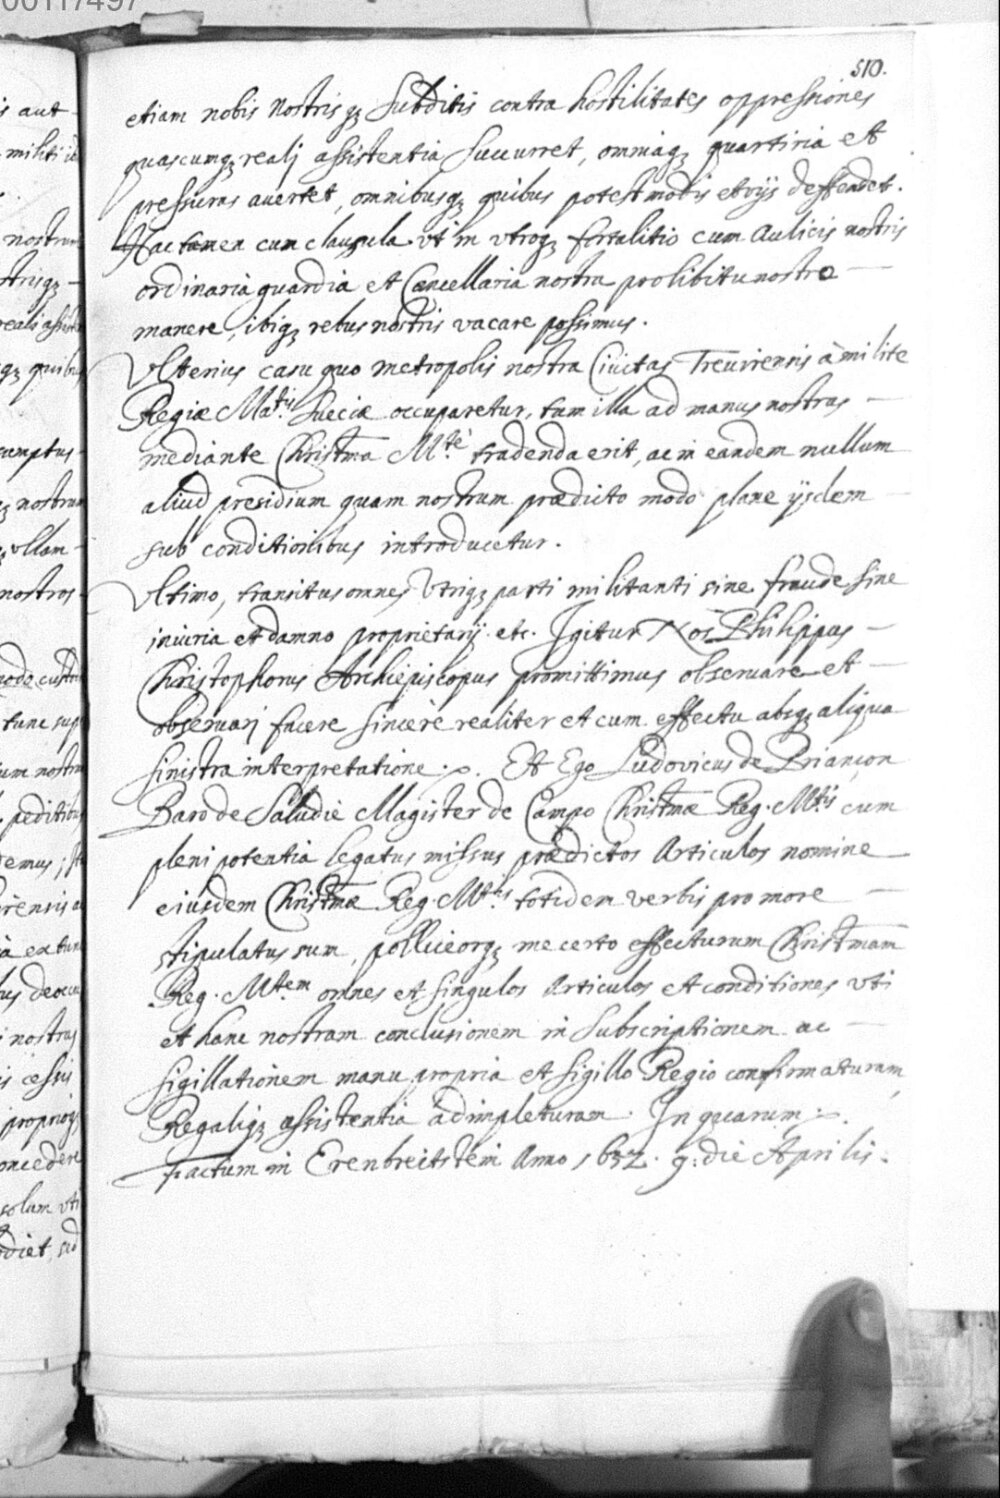 00117497
510.
etiam nobis nostrisqȝ Subditis contra hostilitates oppressiones
quascumqȝ realj assistentia Succurret, omniaqȝ quartiria et
pressuras avertet, omnibusqȝ quibus potest modis et vijs deffendet.
Hac tamen cum clausula vt in vtroqȝ fortalitio cum Aulicis nostris
ordinaria guardia et Cancellaria nostra pro libitu nostro —
manere, ibiqȝ rebus nostris vacare possimus.
Vlterius casu quo metropolis nostra Civitas Trevirensis à milite
Regiæ Ma:tis Sueciæ occuparetur, tum illa ad manus nostras —
mediante Christma M:te tradenda erit, ac in eandem nullum
aliud presidium quam nostrum prædicto modo plane ijsdem
sub conditionibus introducetur.
Vltimo, transitus omnes Vtriqȝ parti militanti sine fraude sine
iniuria et damno proprietarij etc. Igitur Nos Philippus —
Christophorus Archiepiscopus promittimus observare et —
observarj facere sincerè realiter et cum effectu absqȝ aliqua
sinistra interpretatione. Et Ego Ludovicus de Briancon
Baro de Saludie Magister de Campo Christmæ Reg. M:tis cum
pleni potentia legatus missus prædictos Articulos nomine
eiusdem Christmæ Reg. M:tis totidem verbis pro more —
stipulatus sum, polliceorqȝ me certo effecturum Christmam
Reg. Mtem omnes et singulos Articulos et conditiones vti
et hanc nostram conclusionem in Subscriptionem ac —
sigillationem manu propria et sigillo Regio confirmaturam,
Regaliqȝ assistentia adimpleturam. In quarum
Factum in Erenbreitstein Anno 1632. 9: die Aprilis.